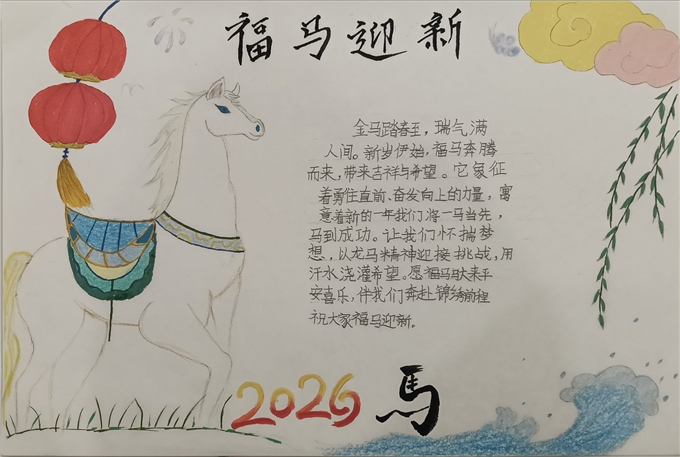 福马迎新
金马踏春至，瑞气满
人间。新岁伊始，福马奔腾
而来，带来吉祥与希望。它象征
着勇往直前、奋发向上的力量，寓
意着新的一年我们将一马当先，
马到成功。让我们怀揣梦
想，以龙马精神迎接挑战，用
汗水浇灌希望。愿福马驮来平
安喜乐，伴我们奔赴锦绣前程
祝大家福马迎新。
2026 馬